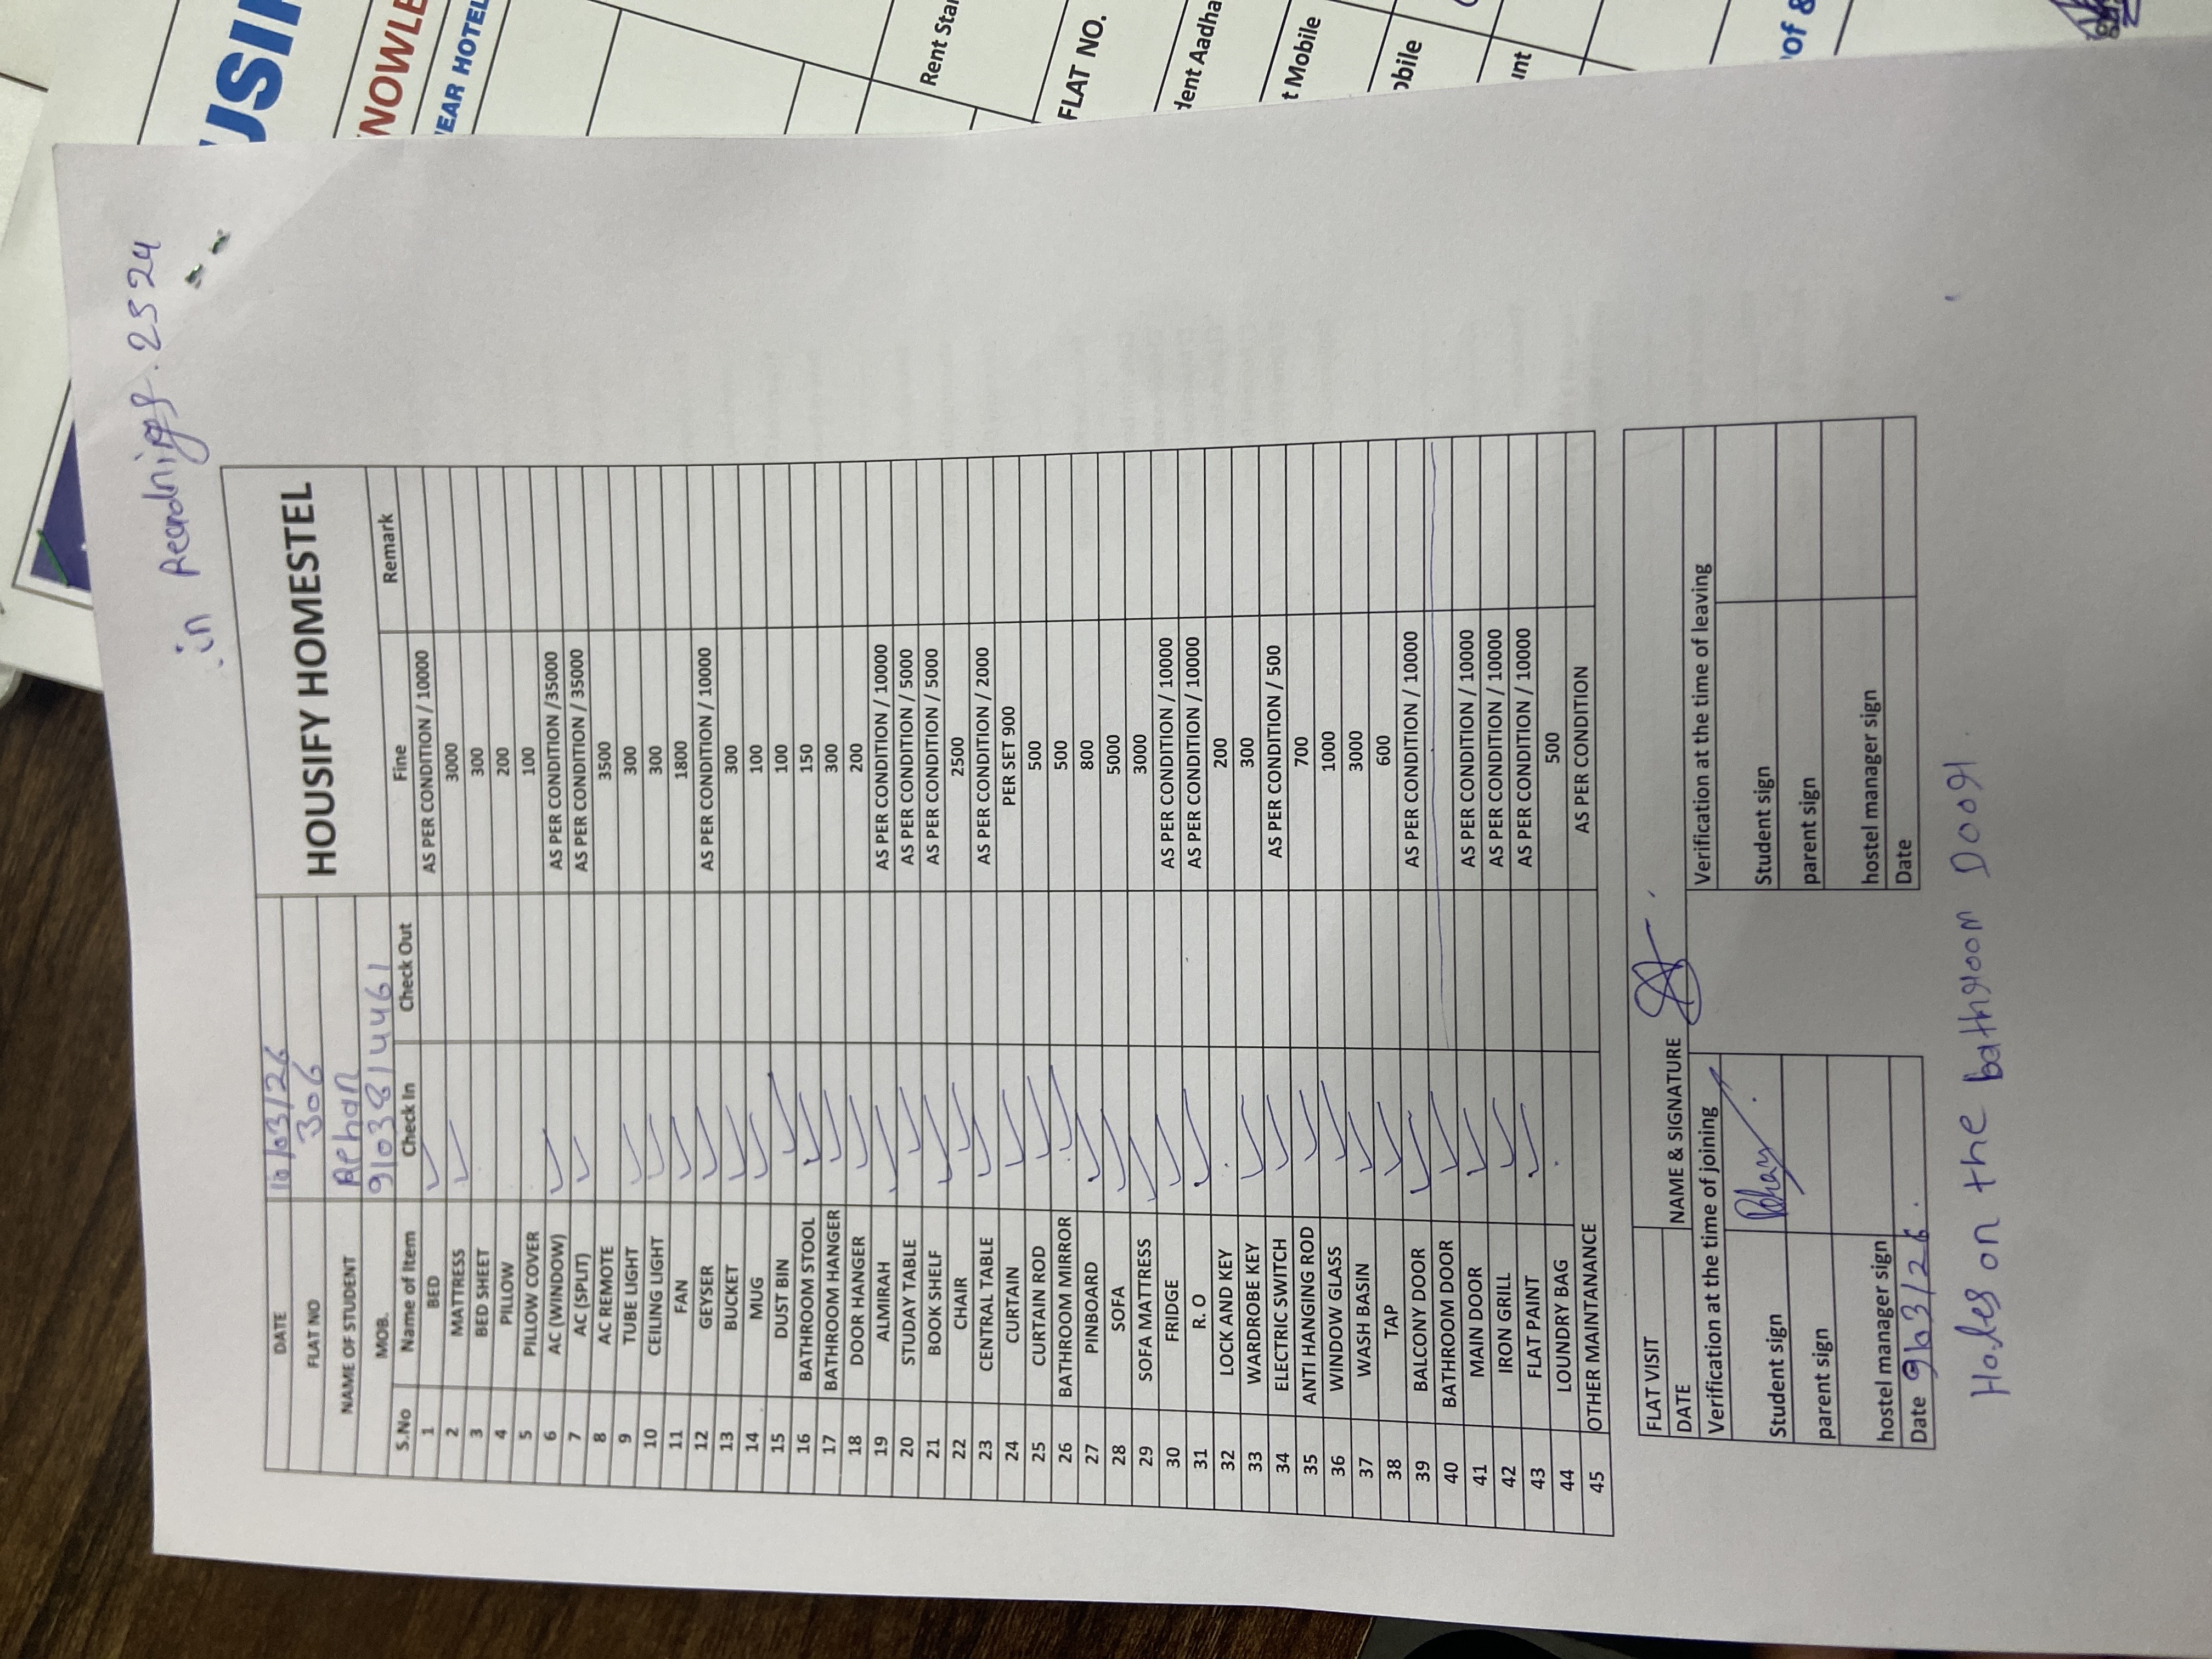 in Reardnigg. 2324
HOUSIFY HOMESTEL
DATE 10/03/26
FLAT NO 306
NAME OF STUDENT
MOB. 9103814461
S.No Name of Item Check In Check Out Fine Remark
1 BED ✓ AS PER CONDITION / 10000
2 MATTRESS ✓ 3000
3 BED SHEET 300
4 PILLOW 200
5 PILLOW COVER 100
6 AC (WINDOW) ✓ AS PER CONDITION /35000
7 AC (SPLIT) ✓ AS PER CONDITION / 35000
8 AC REMOTE 3500
9 TUBE LIGHT ✓ 300
10 CEILING LIGHT ✓ 300
11 FAN ✓ 1800
12 GEYSER ✓ AS PER CONDITION / 10000
13 BUCKET ✓ 300
14 MUG ✓ 100
15 DUST BIN ✓ 100
16 BATHROOM STOOL ✓ 150
17 BATHROOM HANGER ✓ 300
18 DOOR HANGER ✓ 200
19 ALMIRAH ✓ AS PER CONDITION / 10000
20 STUDAY TABLE ✓ AS PER CONDITION / 5000
21 BOOK SHELF ✓ AS PER CONDITION / 5000
22 CHAIR ✓ 2500
23 CENTRAL TABLE ✓ AS PER CONDITION / 2000
24 CURTAIN ✓ PER SET 900
25 CURTAIN ROD ✓ 500
26 BATHROOM MIRROR ✓ 500
27 PINBOARD ✓ 800
28 SOFA ✓ 5000
29 SOFA MATTRESS ✓ 3000
30 FRIDGE ✓ AS PER CONDITION / 10000
31 R. O ✓ AS PER CONDITION / 10000
32 LOCK AND KEY 200
33 WARDROBE KEY ✓ 300
34 ELECTRIC SWITCH ✓ AS PER CONDITION / 500
35 ANTI HANGING ROD ✓ 700
36 WINDOW GLASS ✓ 1000
37 WASH BASIN ✓ 3000
38 TAP ✓ 600
39 BALCONY DOOR ✓ AS PER CONDITION / 10000
40 BATHROOM DOOR ✓
41 MAIN DOOR ✓ AS PER CONDITION / 10000
42 IRON GRILL ✓ AS PER CONDITION / 10000
43 FLAT PAINT ✓ AS PER CONDITION / 10000
44 LOUNDRY BAG 500
45 OTHER MAINTANANCE AS PER CONDITION
FLAT VISIT
DATE NAME & SIGNATURE
Verification at the time of joining Verification at the time of leaving
Student sign Student sign
parent sign parent sign
hostel manager sign hostel manager sign
Date 9/03/26. Date
Holes on the bathroom Door.
USI
NOWLE
EAR HOTEL
Rent Sta
FLAT NO.
dent Aadha
t Mobile
obile
unt
of &